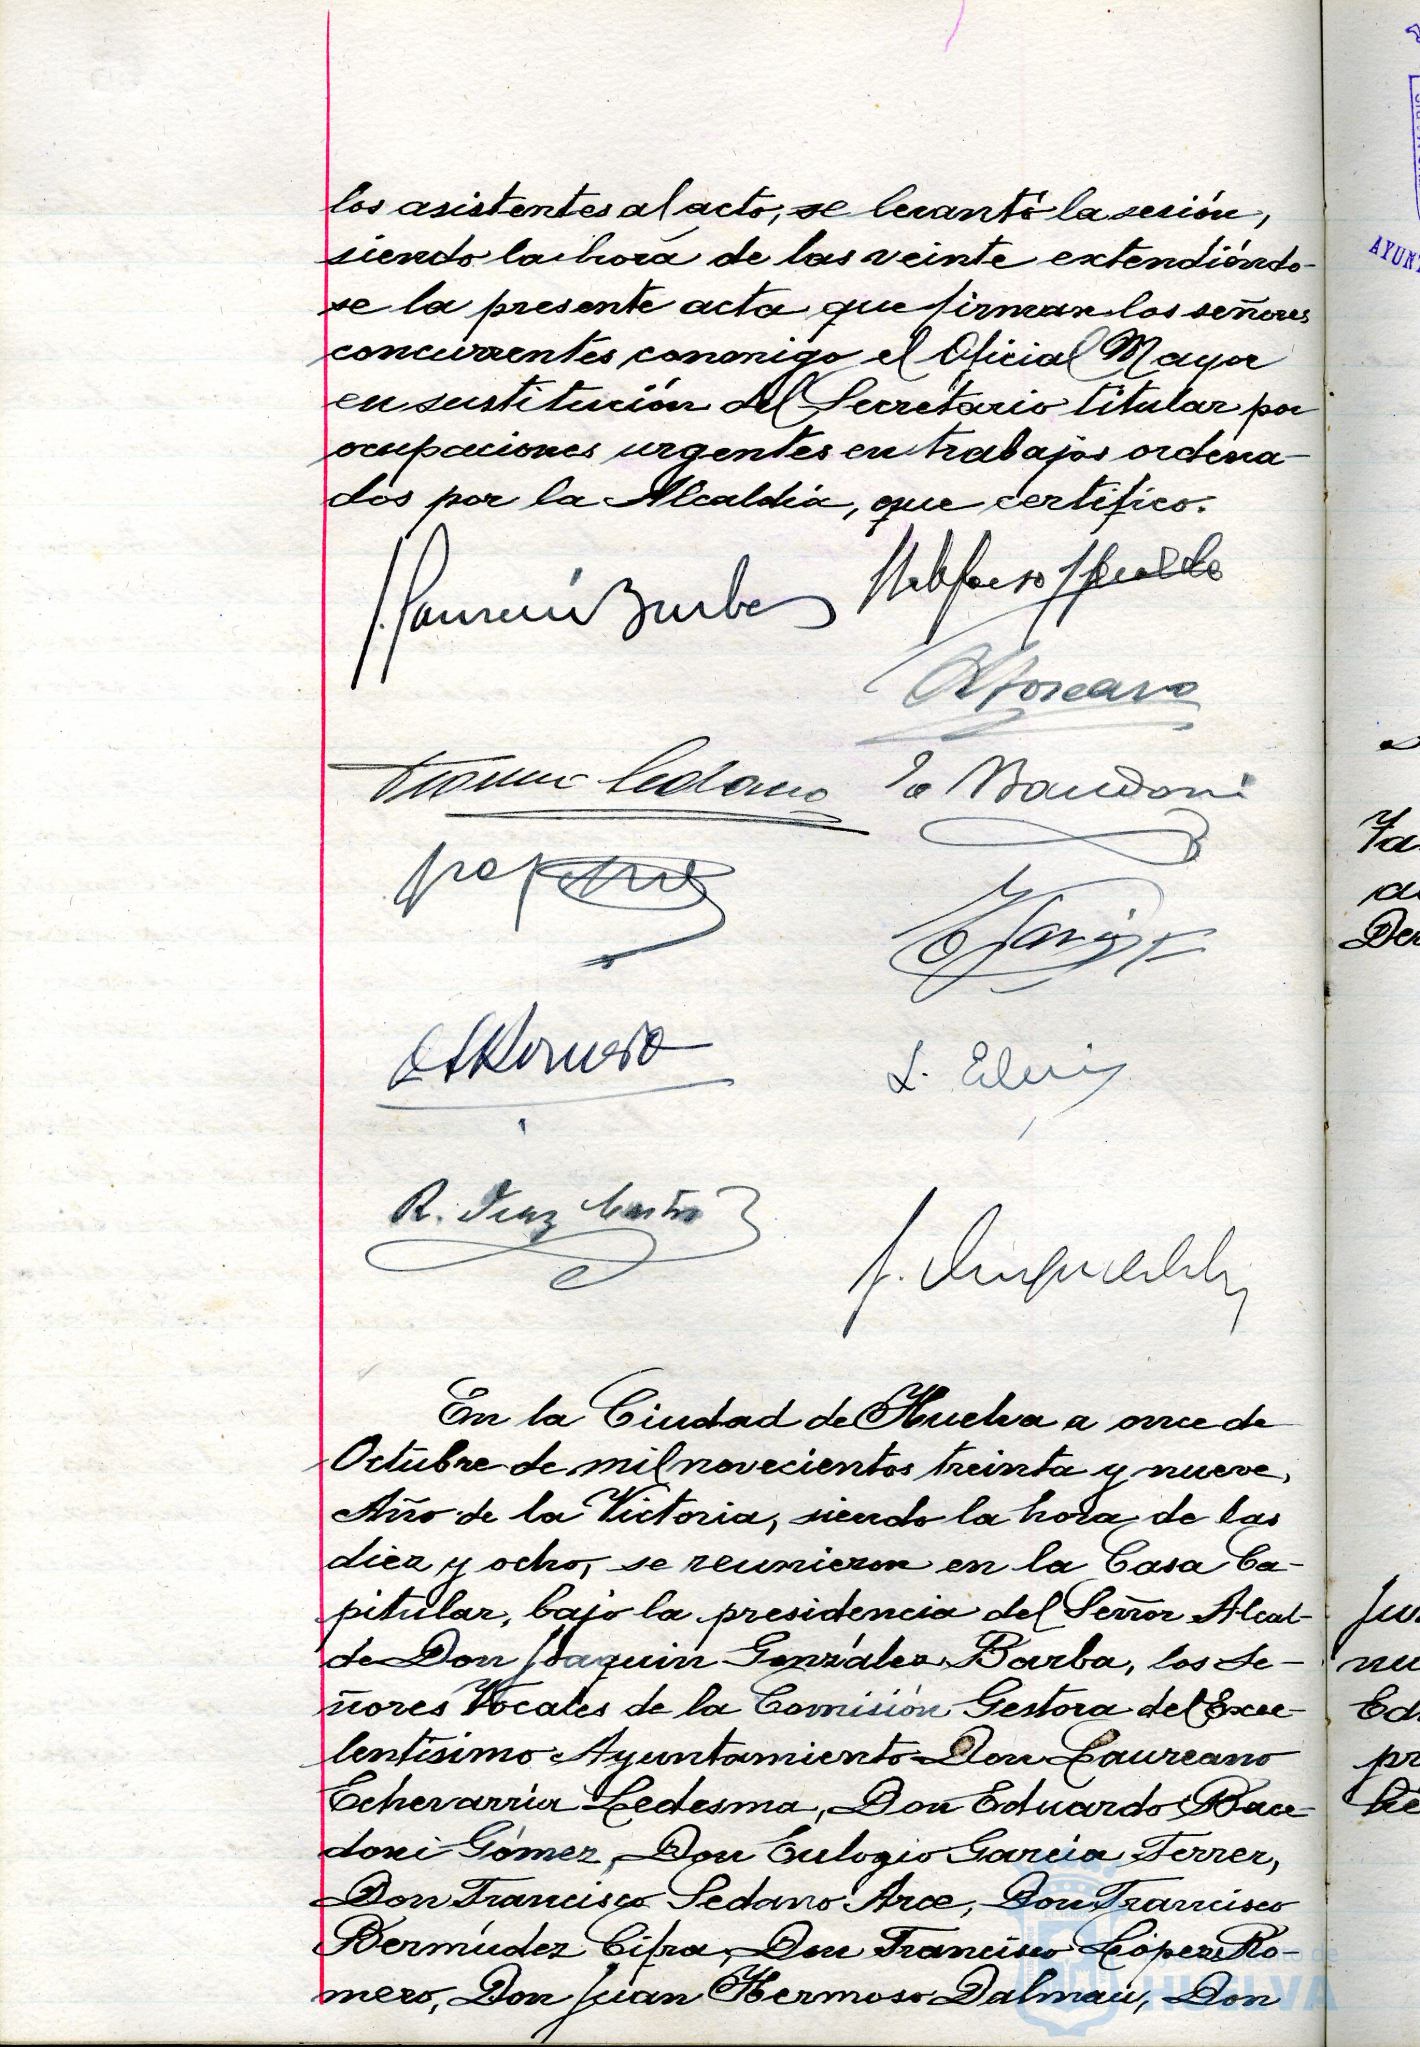 los asistentes al acto, se levantó la sesión,
siendo la hora de las veinte extendiéndo-
se la presente acta que firman los señores
concurrentes conmigo el Oficial Mayor
en sustitución del Secretario titular por
ocupaciones urgentes en trabajos ordena-
dos por la Alcaldía, que certifico.
R. Diaz
En la Ciudad de Huelva a once de
Octubre de mil novecientos treinta y nueve,
Año de la Victoria, siendo la hora de las
diez y ocho, se reunieron en la Casa Ca-
pitular, bajo la presidencia del Señor Alcal-
de Don Joaquin González Barba, los Se-
ñores Vocales de la Comisión Gestora del Exce-
lentísimo Ayuntamiento Don Laureano
Echevarría Ledesma, Don Eduardo Bace-
doni Gómez, Don Eulogio García Ferrer,
Don Francisco Sedano Arce, Don Francisco
Bermúdez Cifra, Don Francisco López Ro-
mero, Don Juan Hermoso Dalmau, Don
HUELVA